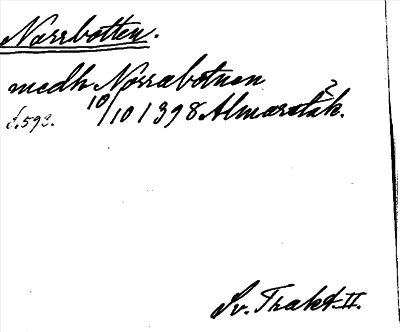 Norrbotten.
medh Norrabotnen
10/10 1398 Almarstäk.
S. 592.
Sv. Trakt. II.